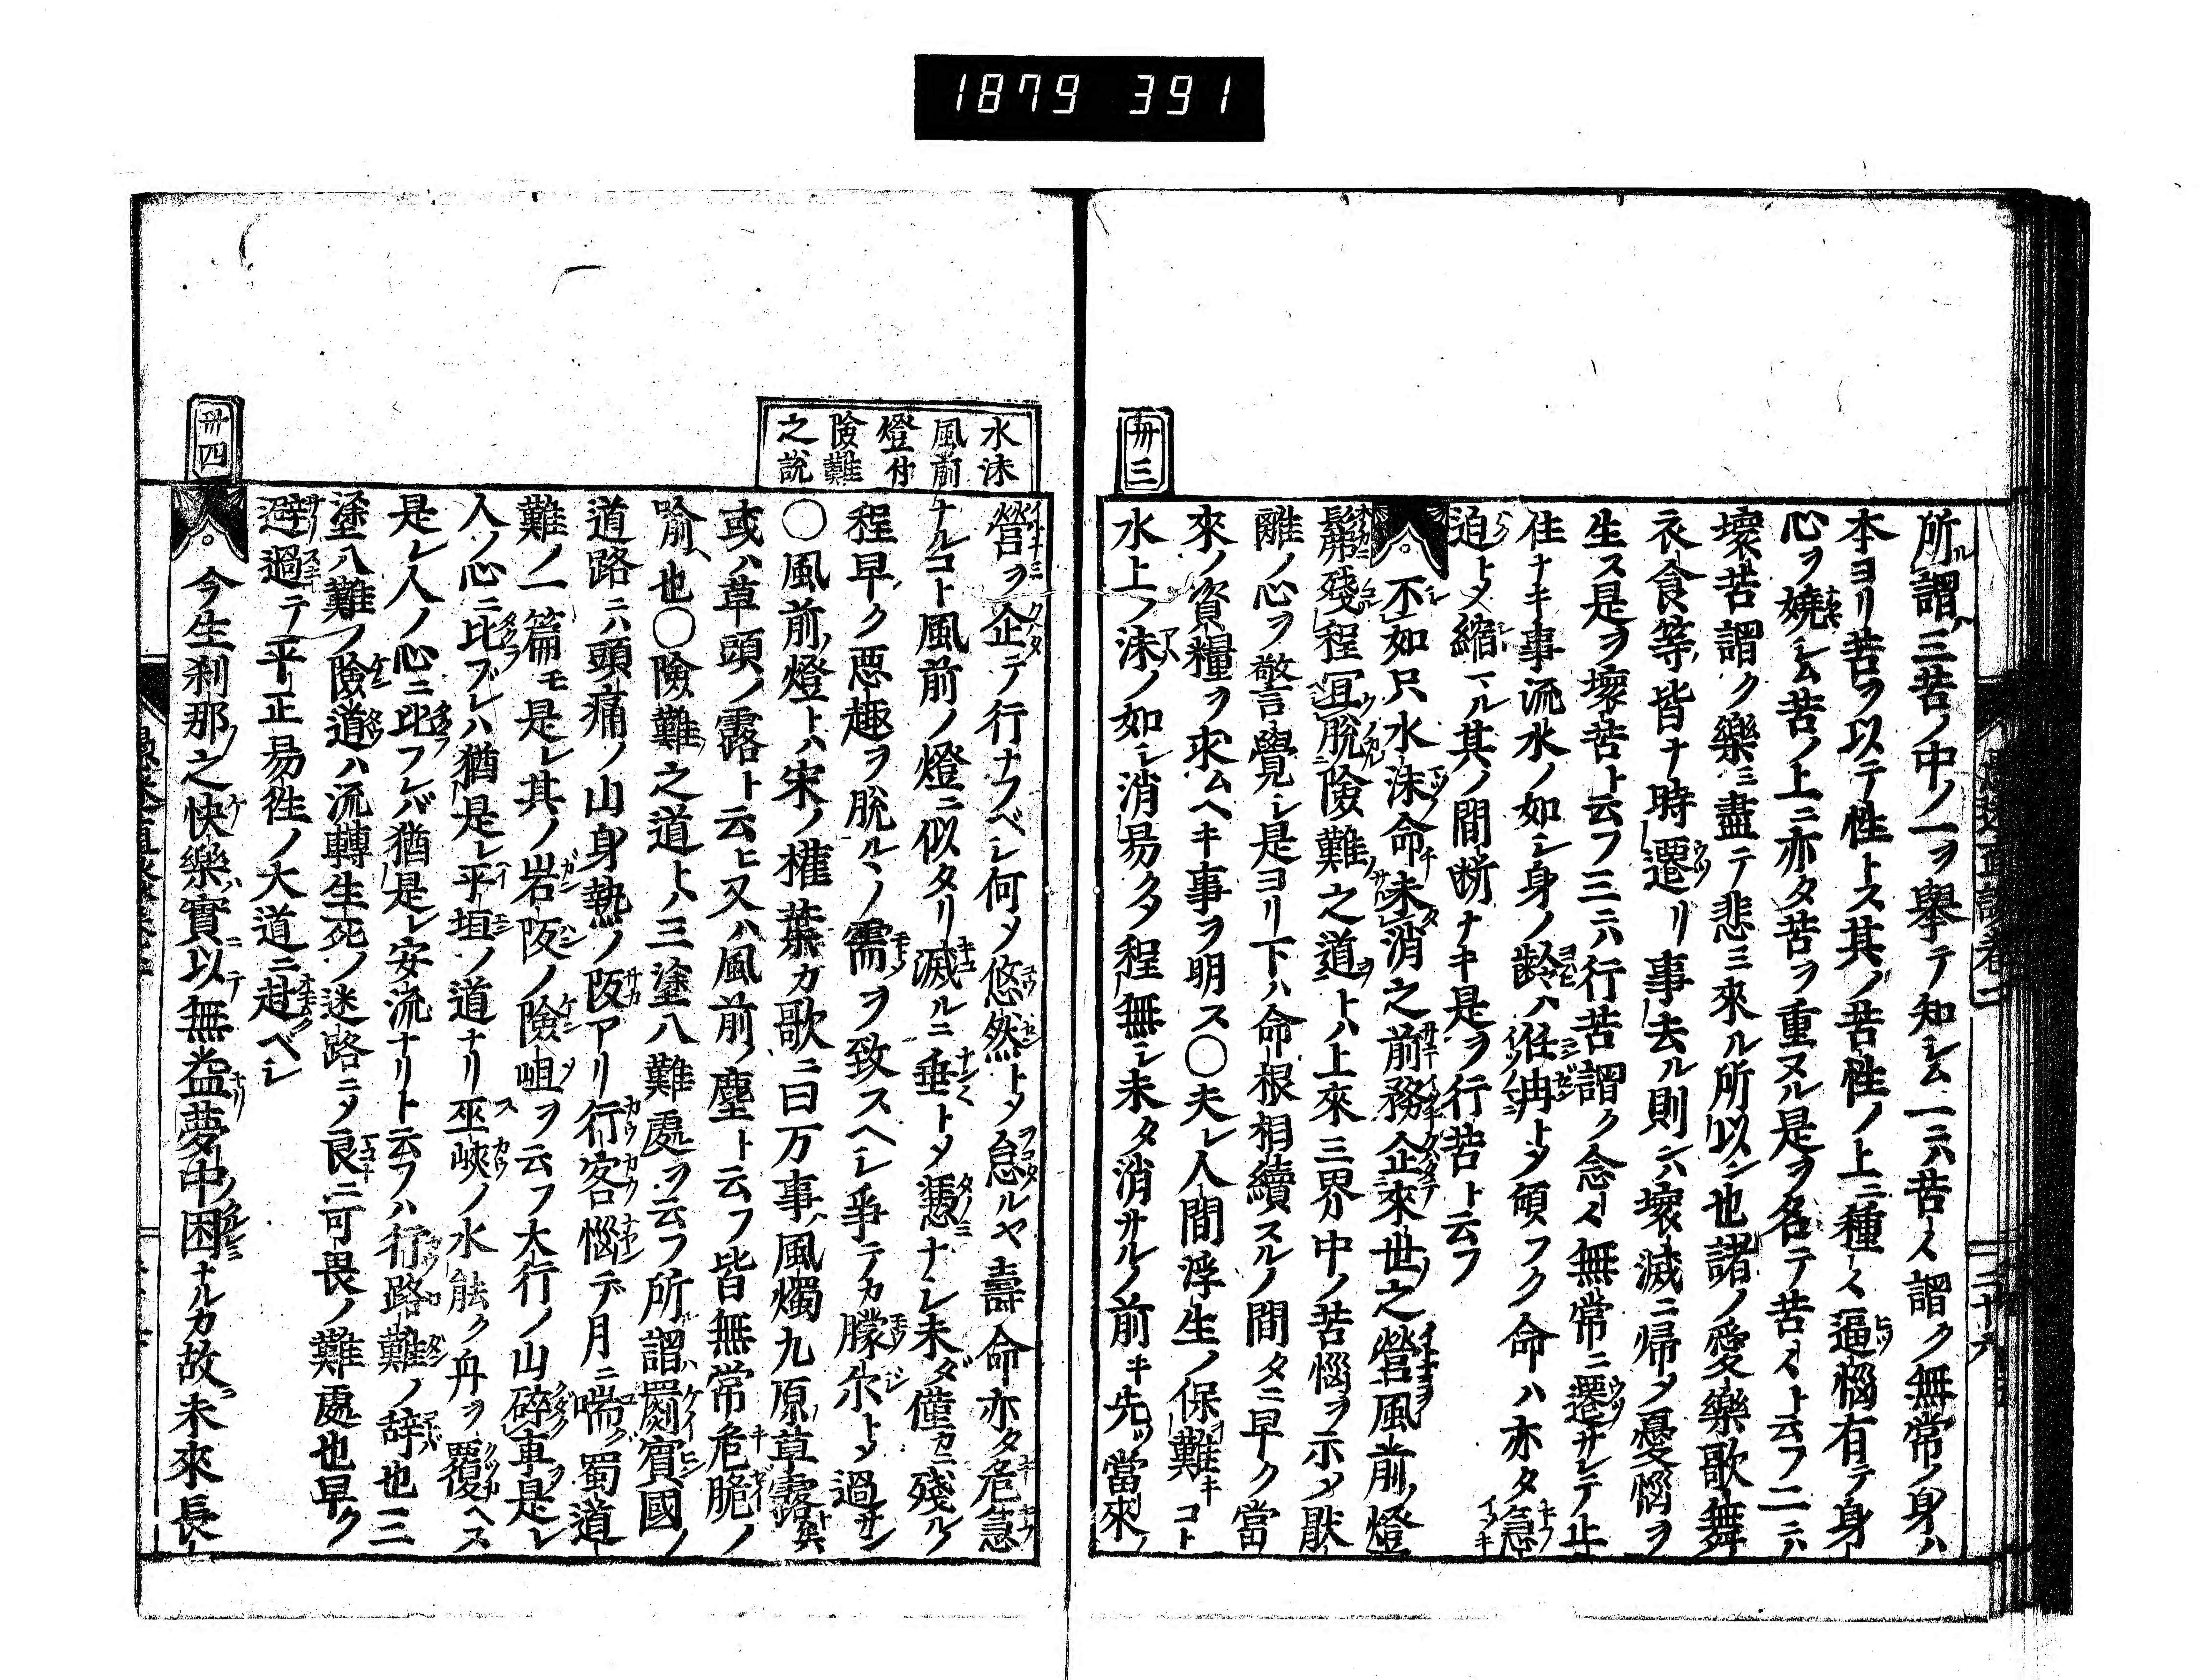 1879 391
卅三
所謂三苦ノ中ノ一ヲ舉テ知シム一ニハ苦々謂ク無常ノ身ハ
本ヨリ苦ヲ以テ性トス其ノ苦性ノ上ニ種々逼惱有テ身
心ヲ嬈シム苦ノ上ニ亦タ苦ヲ重ヌル是ヲ名テ苦々ト云フ二ニハ
壞苦謂ク樂ミ盡テ悲ミ來ル所以ン也諸ノ愛樂歌舞
衣食等皆ナ時遷リ事去ル則ンハ壞滅ニ帰メ憂惱ヲ
生ス是ヲ壞苦ト云フ三ニハ行苦謂ク念々無常ニ遷サレテ止
住ナキ事流水ノ如シ身ノ齡ハ荏冉トメ傾フク命ハ亦タ急
迫トメ縮マル其ノ間断ナキ是ヲ行苦ト云フ
不如只水沫命未消之前務企來世之營風前ノ燈
髣殘程冝脱險難之道トハ上來三界中ノ苦惱ヲ示メ厭
離ノ心ヲ警覺シ是ヨリ下ハ命根相續スルノ間タニ早ク當
來ノ資糧ヲ求ムヘキ事ヲ明ス〇夫レ人間浮生ノ保難キコト
水上ノ沫ノ如シ消易ク程無シ未タ消サルノ前キ先ッ當來ノ
水沫
風前
燈付
險難
之説
營ヲ企テ行ナフベシ何メ悠然トメ怠ルヤ壽命亦タ危急
ナルコト風前ノ燈ニ似タリ滅ルニ垂トメ憑ナシ未ダ僅カニ殘ル
程早ク悪趣ヲ脱ルヽノ需ヲ致スヘシ爭テカ朦尒トメ過サン
〇風前ノ燈トハ宋ノ權葉カ歌ニ曰万事ハ風燭九原ノ草露ト與
或ハ草頭ノ露ト云ヒ又ハ風前ノ塵ト云フ皆無常危脆ノ
喩ヘ也〇險難之道トハ三塗八難處ヲ云フ所謂罽賓國ノ
道路ニハ頭痛ノ山身熱ノ阪アリ行客惱デ月ニ喘グ蜀道
難ノ一篇モ是レ其ノ岩阪ノ險岨ヲ云フ大行ノ山碎車是レ
人ノ心ニ比ブレハ猶是レ平垣ノ道ナリ巫峽ノ水能ク舟ヲ覆ヘス
是レ人ノ心ニ比フレバ猶是レ安流ナリト云フハ行路難ノ辞也三
塗八難ノ險道ハ流轉生死ノ迷路ニメ良ニ可畏ノ難處也早ク
避過テ平リ正易徃ノ大道ニ赴ベシ
卅四
今生刹那之快樂實以無益夢中困ナルカ故ニ未來長